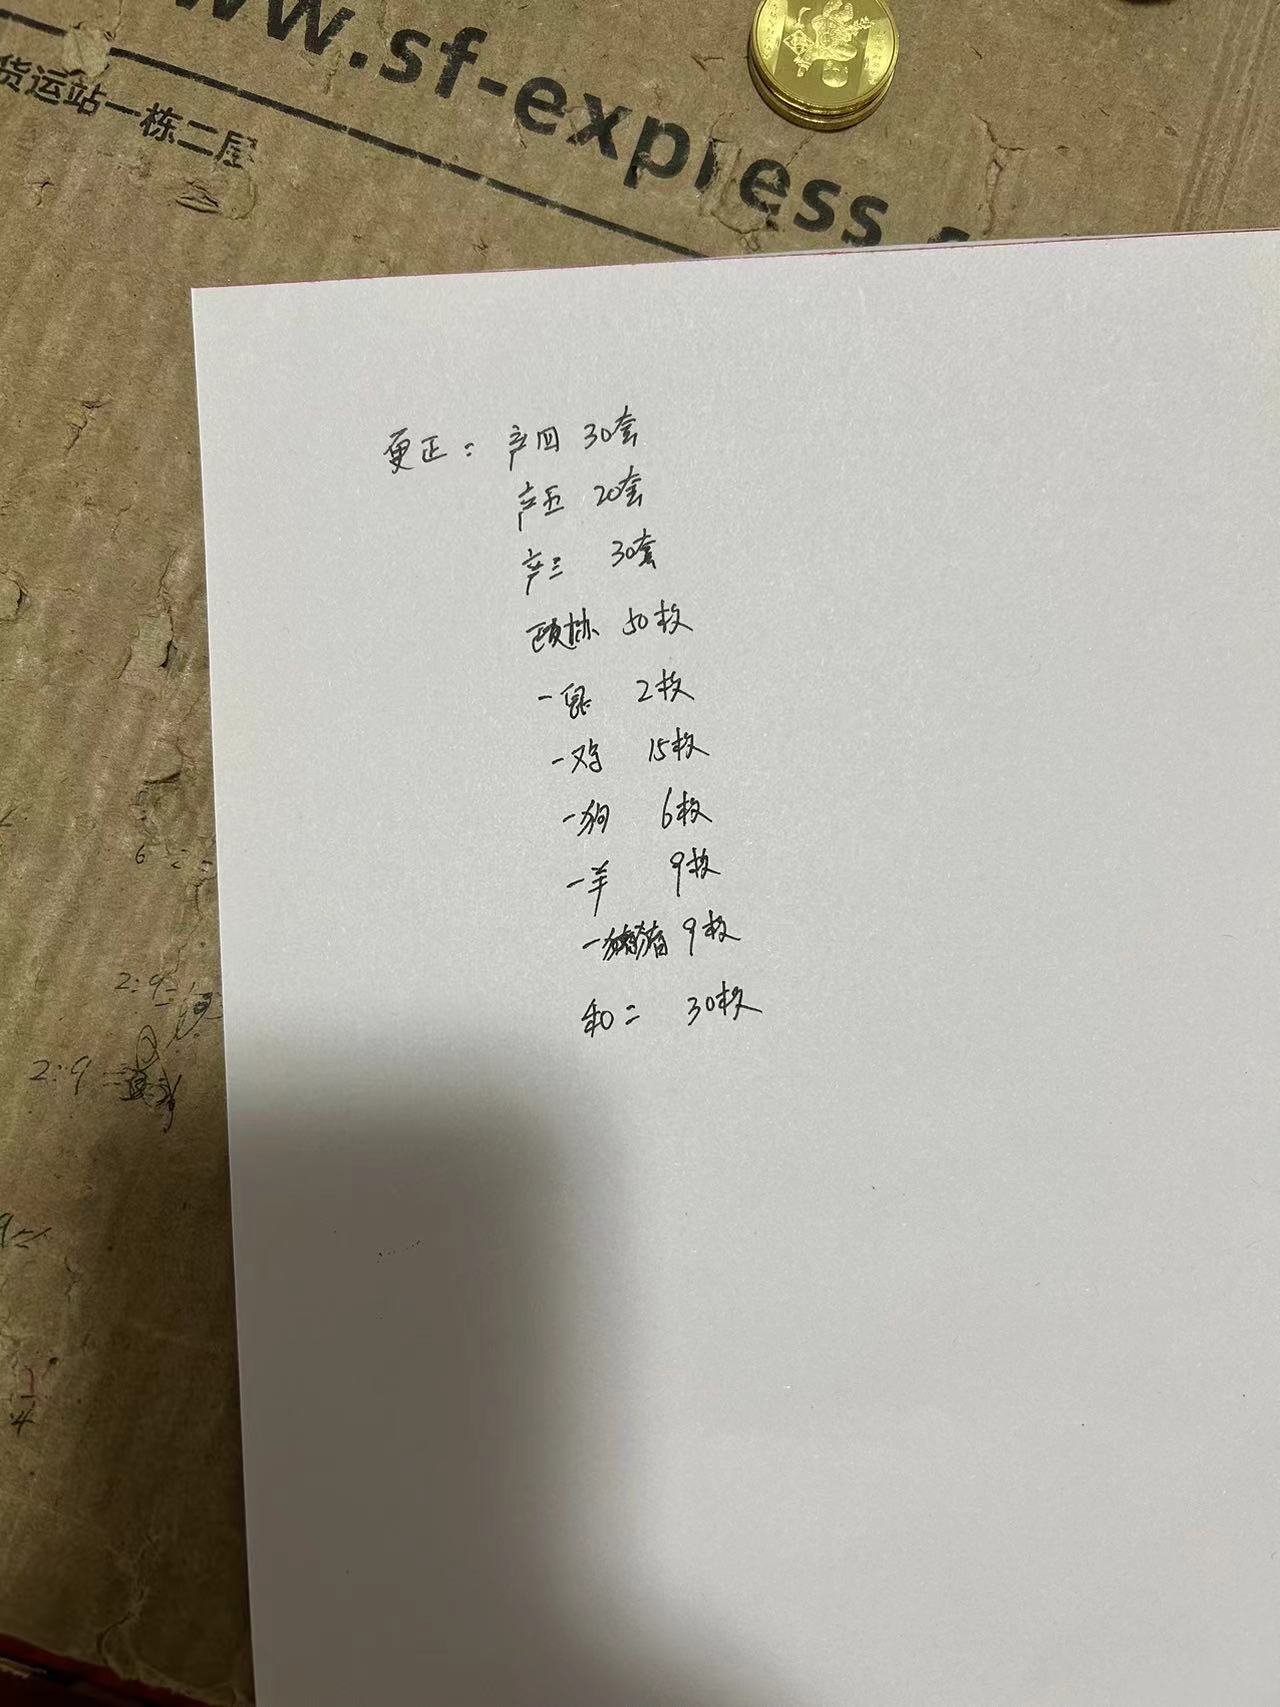 www.sf-express.
货运站一栋二层
更正：产四 30套
产五 20套
产三 30套
50枚
一鼠 2枚
一鸡 15枚
一狗 6枚
一羊 9枚
一猪 9枚
和二 30枚
6
2:9=
2:9=
4